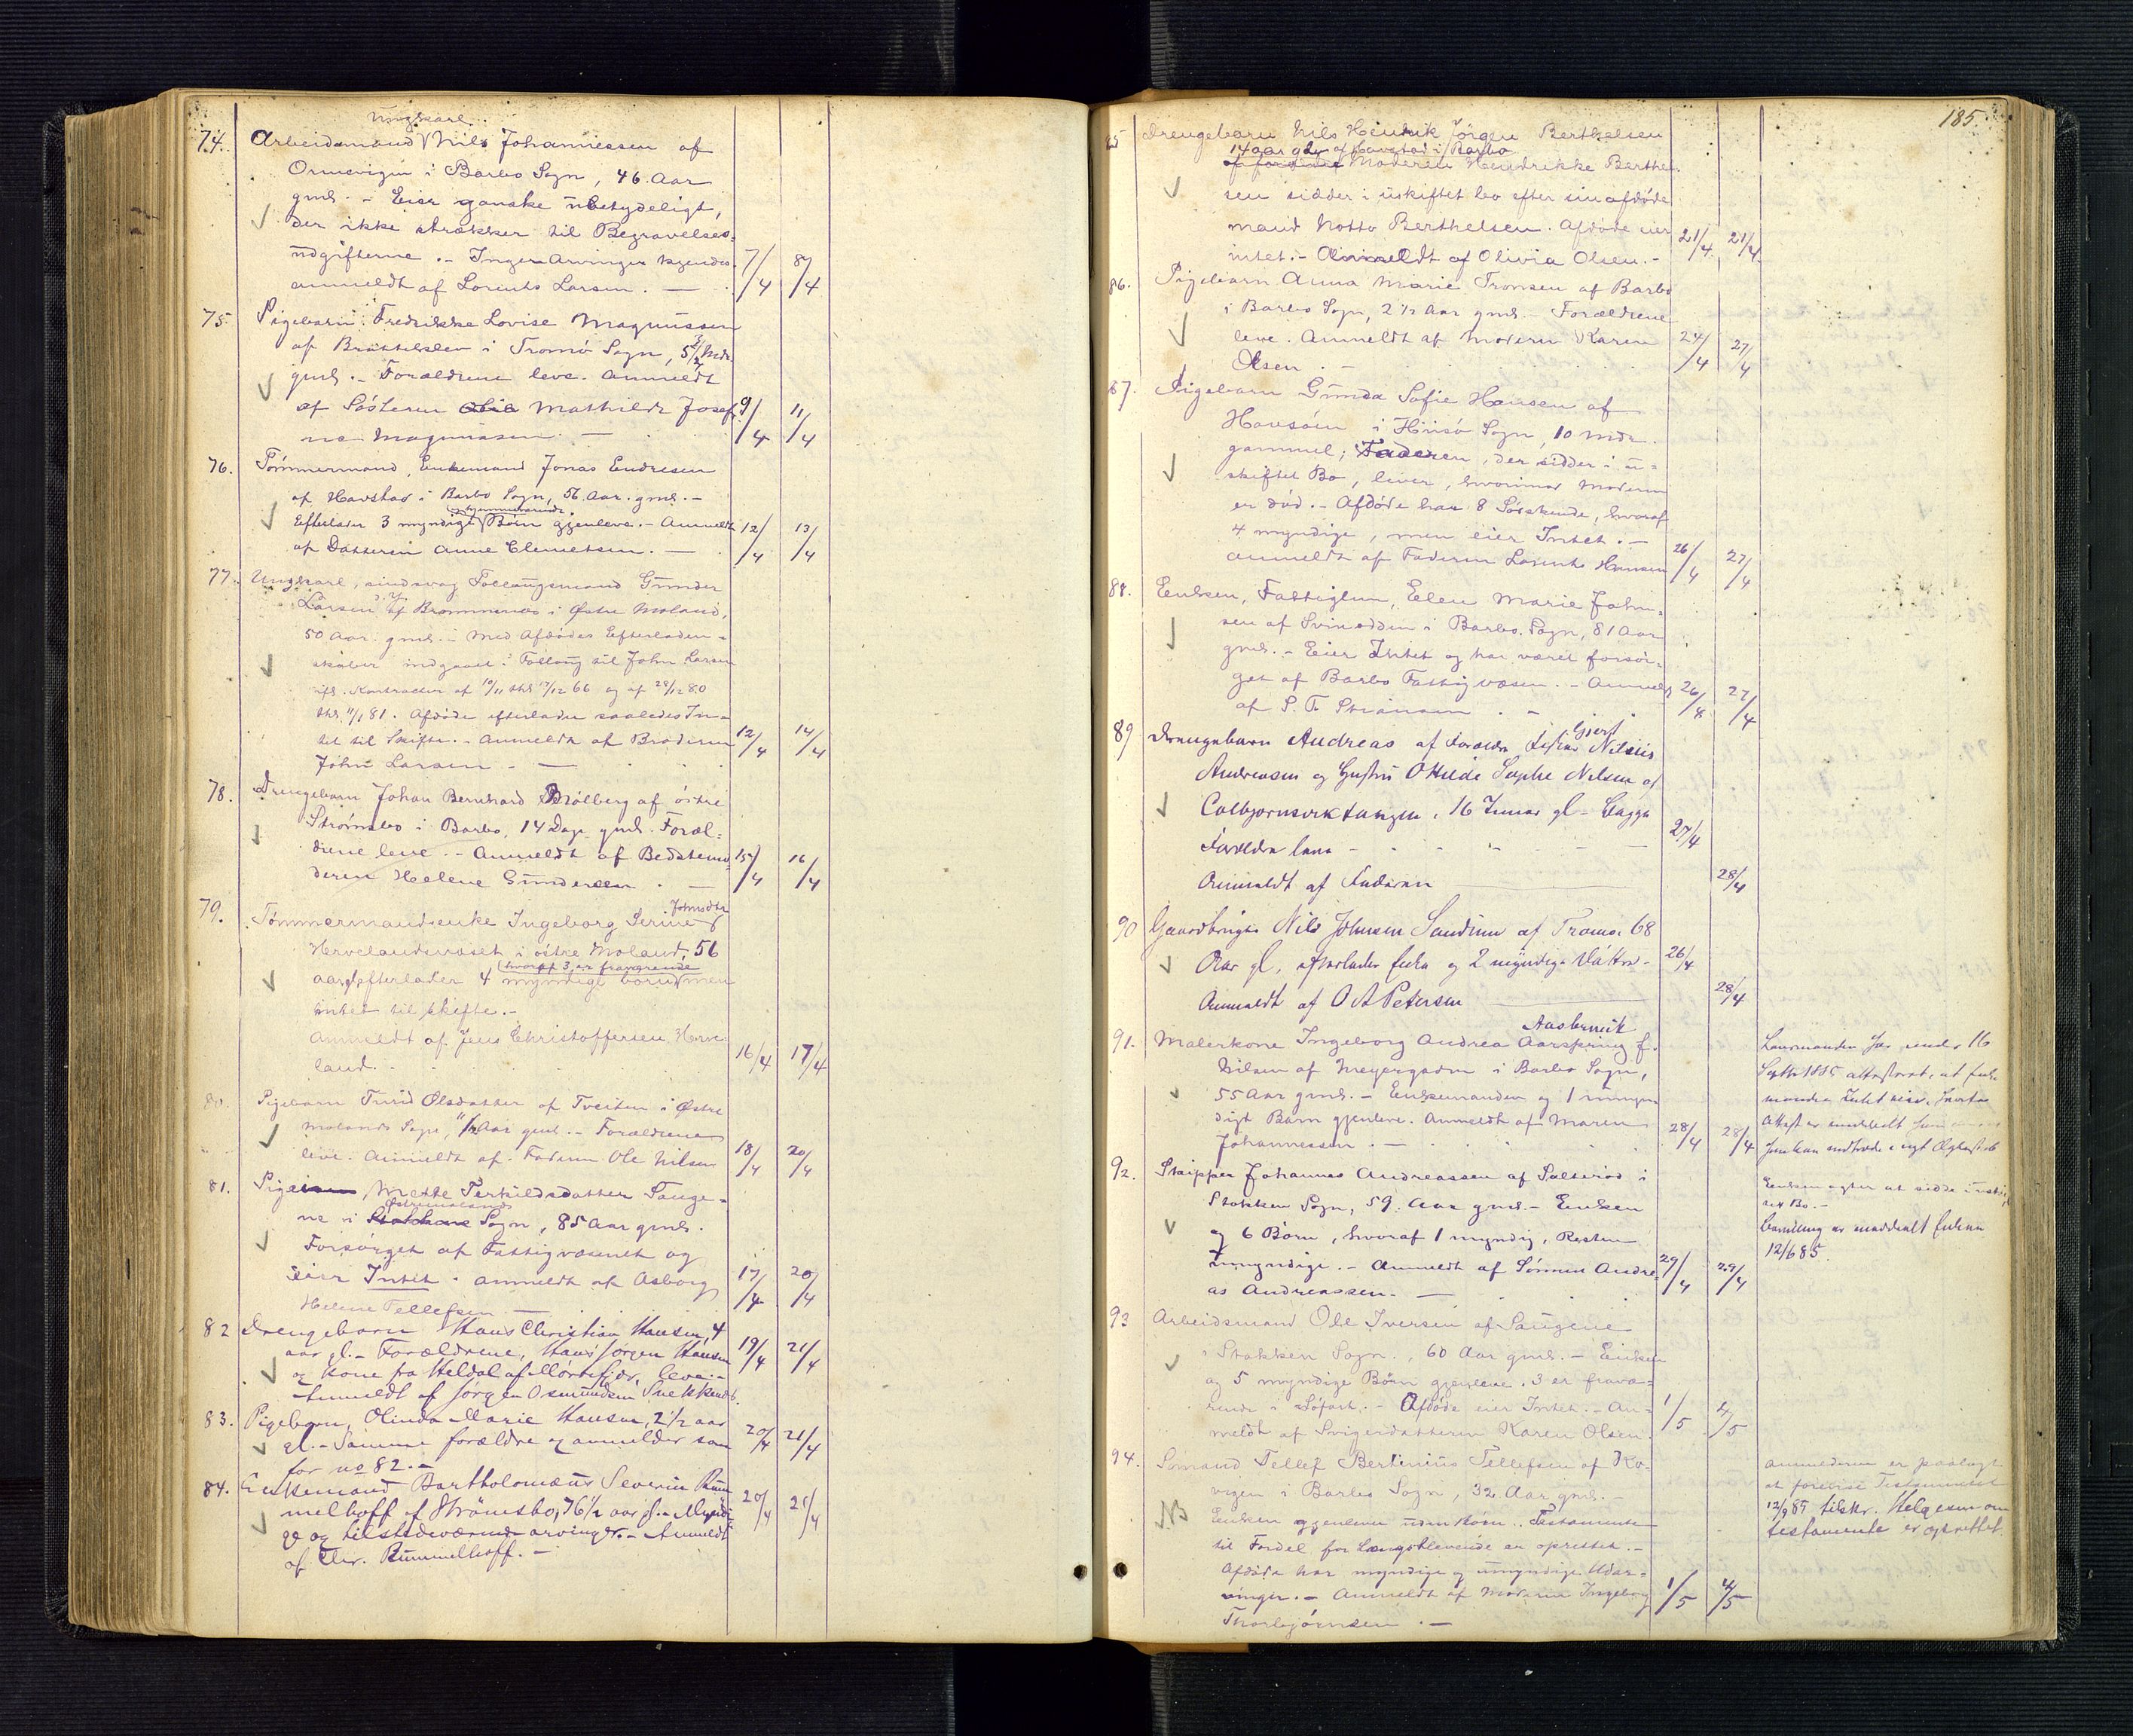 Ungkarl.
74. Arbeidsmand Nils Johannessen af
Ormevigen i Barbo Sogn, 46 Aar
gml. - Eier ganske ubetydeligt,
der ikke strækker til Begravelses-
udgifterne. - Ingen Arvinger kjendes.
anmeldt af Lorents Larsen. - 7/4 8/4
75. Pigebarn Fredrikke Lovise Magnussen
af Brattekslev i Tromø Sogn, 5 1/2 Mdr.
gml. - Forældrene leve. Anmeldt
af Søsteren Mathilde Josefi- 9/4 11/4
ne Magnussen. -
76. Tømmermand, Enkemand Jonas Endresen
af Havstad i Barbo Sogn, 56 Aar gml. -
hjemmeværende
Efterlader 3 myndige Børn gjenleve. - Anmeldt 12/4 13/4
af Datteren Anne Clemetsen. -
77. Ungkarl, sindsvag Follaugsmand Gunder
Larsen af Brommenes i Østre Moland,
50 Aar gml. - Med Afdødes Efterladen-
skaber indgaaet i Follaug til John Larsen
ifl. Kontracter af 10/11 thl. 17/12 66 og af 28/12 80
thl. 11/1 81. Afdøde efterlader saaledes In-
tet til Skifte. - Anmeldt af Broderen 12/4 14/4
John Larsen - -
78. Drengebarn Johan Bernhard Sølberg af østre
Strømsbo i Barbo, 14 Dage gml. Foræl-
drene leve. - Anmeldt af Bedstemo- 15/4 16/4
deren Helene Gundersen. -
79. Tømmermandsenke Ingeborg Serine Johnsdtr
Hervelandsroset i østre Moland, 56
hvoraf 3 er fraværende
aar, efterlader 4 myndige børn men
intet til skifte. -
Anmeldt af Jens Christoffersen Herve-
land. - 16/4 17/4
80. Pigebarn Turid Olsdatter af Tveiten i Østre
Molands Sogn, 1/2 Aar gml. - Forældrene
leve. Anmeldt af Faderen Ole Nilsen 18/4 20/4
81. Pige, Mette Terkildsdatter Tange-
Østremolands
ne i Stokkens Sogn, 85 Aar gml.
Forsørget af Fattigvæsenet og
eier Intet. anmeldt af Asborg 17/4 20/4
Helene Tellefsen. -
82 Drengebarn Hans Christian Hansen, 4
aar gl. - Forældrene, Hans Jørgen Hansen 19/4 21/4
og Kone fra Heldal af Mørefjær, leve. -
Anmeldt af Jørgen Osmundsen Snekkend.
83. Pigebarn, Olinda Marie Hansen, 2 1/2 aar
gl. - Samme forældre og anmelder som 20/4 21/4
for no 82. -
84. Enkemand Bartholomæus Severin Rum-
melhoff af Strømsbo, 76 1/2 aar gl. - Myndi- 20/4 21/4
ge og tilstedeværende arvinger. - Anmeldt
af Chr. Rummelhoff. -
185.
85 Drengebarn Nils Henrik Jørgen Berthelsen
14 aar gl. af Havstad i Barbo
Moderen Hendrikke Berthel-
sen sidder i uskiftet bo efter sin afdøde
mand Notto Berthelsen. Afdøde eier 21/4 21/4
intet. - Anmeldt af Olivia Olsen. -
86. Pigebarn Anna Marie Tronsen af Barbo
i Barbo Sogn, 2 1/2 Aar gml. - Forældrene
leve. Anmeldt af Moderen Karen 24/4 27/4
Olsen. -
87. Pigebarn Gunda Sofie Hansen af
Havsøen i Hisø Sogn, 10 Mdr.
gammel; Faderen, der sidder i u-
skiftet Bo, lever, hvorimod Moderen
er død. - Afdøde har 8 Søskende, hvoraf
4 myndige, men eier Intet. -
anmeldt af Faderen Lorents Hansen 26/4 27/4
88. Enken, Fattiglem, Elen Marie John-
sen af Svinodden i Barbo Sogn, 81 Aar
gml. - Eier Intet og har været forsør-
get af Barbo Fattigvæsen. - Anmeldt 26/4 27/4
af S. T. . -
Gjert
89 Drengebarn Andreas af Forældre Nilsius
Andreasen og Hustru Othilde Sophie Nilsen af
Colbjornsviktangen, 16 Timer gl -
Forældre leve - - - - 27/4
Anmeldt af Faderen 28/4
90 Gaardbruger Nils Johnsen Sandum af Tromø 68
Aar gl, efterlader Enke og 2 myndige Døttre - 26/4
Anmeldt af O A Petersen 28/4
Aasbrink
91. Malerkone Ingeborg Andrea Aarspring f.
Nilsen af Meyergaden i Barbo Sogn,
55 Aar gml. - Enkemanden og 1 umyn-
digt Barn gjenleve. Anmeldt af Maren 28/4 28/4
Johannessen. -
Lensmanden har under 16
Septbr 1885 attesteret, at Enke-
manden Intet eier, hvorfor
92. Skipper Johannes Andreassen af Salterød i
Stokken Sogn, 59 Aar gml. - Enken
og 6 Børn, hvoraf 1 myndig, Resten
umyndige. - Anmeldt af Sønnen Andre- 29/4 29/4
as Andreassen. -
Enken agter at sidde i uskif-
tet Bo. -
Bevilling er meddelt Enken
12/6 85.
93 Arbeidsmand Ole Iversen af Saugene
i Stokken Sogn, 60 Aar gml. - Enken
og 5 myndige Børn gjenleve. 3 er fravæ-
rende i Søfart. - Afdøde eier Intet. - An- 1/5 4/5
meldt af Svigerdatteren Karen Olsen.
94. Sømand Tellef Bertinius Tellefsen af Ko-
vigen i Barbo Sogn, 32 Aar gml. -
NB Enken gjenlever uden Børn. Testamente
til Fordel for Længstlevende er oprettet. -
Afdøde har myndige og umyndige Udar-
vinger. - Anmeldt af Moderen Ingeborg 1/5 4/5
Thorbjørnsen. -
anmelderen er paalagt
at forevise Testamentet
12/9 85 tilskr. Helgesen om
testamente er oprettet.